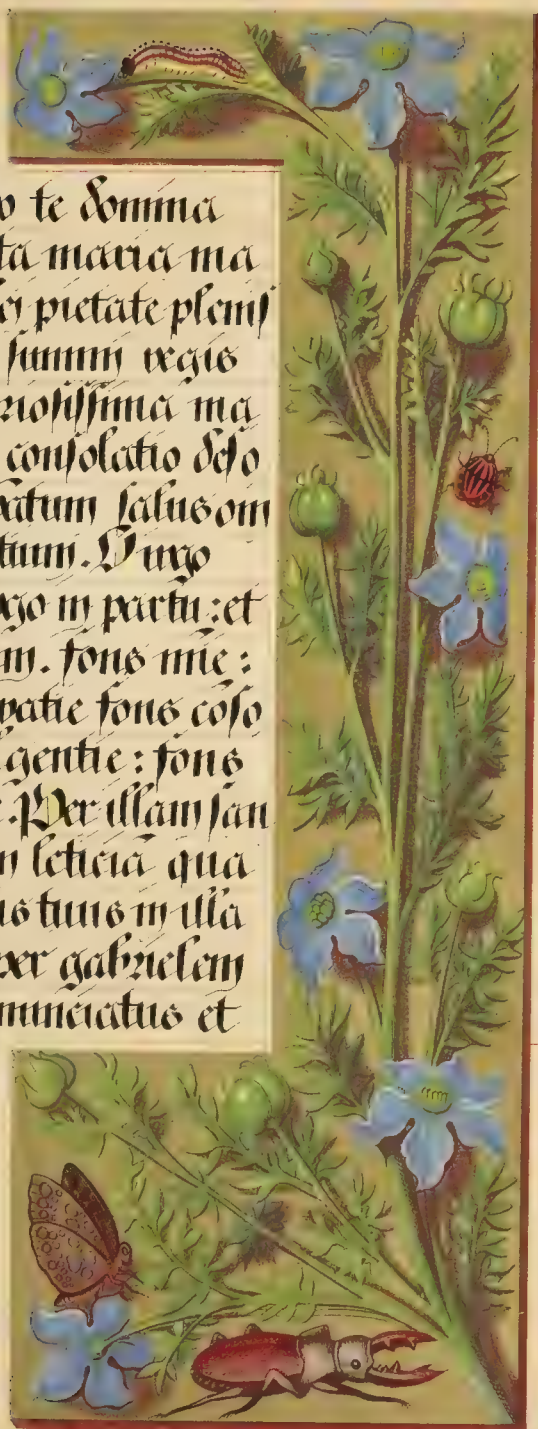 o te domina
ta maria ma
ei pietate plenis
summi regis
riosissima ma
consolatio deso
ratum salus om
tium. O virgo
rgo in partu: et
m. fons mie:
gratie fons coso
gentie: fons
. Per illam san
m leticia qua
us tuus in illa
per gabrielem
nunciatus et